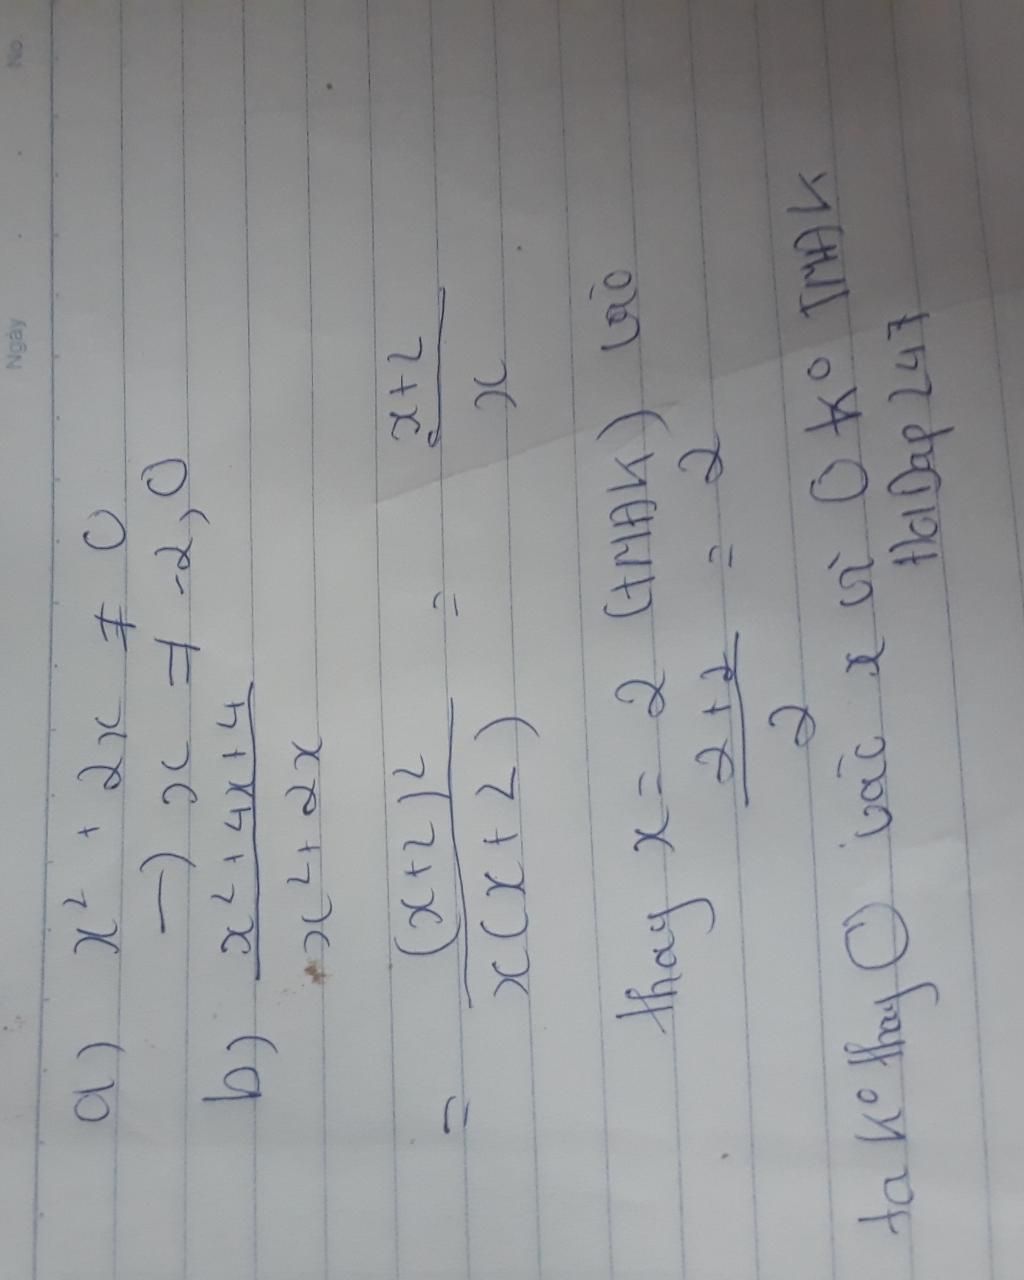 Ngày No.
a) x² + 2x ≠ 0
→ x ≠ -2, 0
b) x² + 4x + 4
x² + 2x
= (x+2)² = x+2
x(x+2) x
thay x = 2 (TMĐK) vào
2+2 = 2
2
ta k° thay 0 vào x vì 0 k° TMĐK
HoiDap247